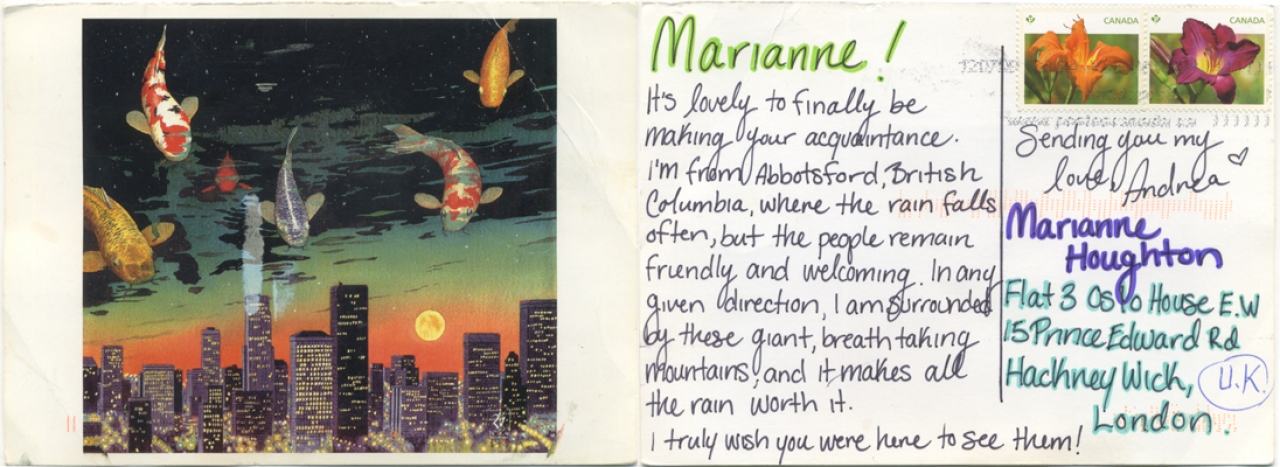 Marianne!
It's lovely to finally be
making your acquaintance.
I'm from Abbotsford, British
Columbia, where the rain falls
often, but the people remain
friendly and welcoming. In any
given direction, I am surrounded
by these giant, breath taking
mountains, and it makes all
the rain worth it.
I truly wish you were here to see them!
CANADA
CANADA
Sending you my
love, Andrea
Marianne
Houghton
Flat 3 Oslo House E.W
15 Prince Edward Rd
Hackney Wick,
U.K.
London.